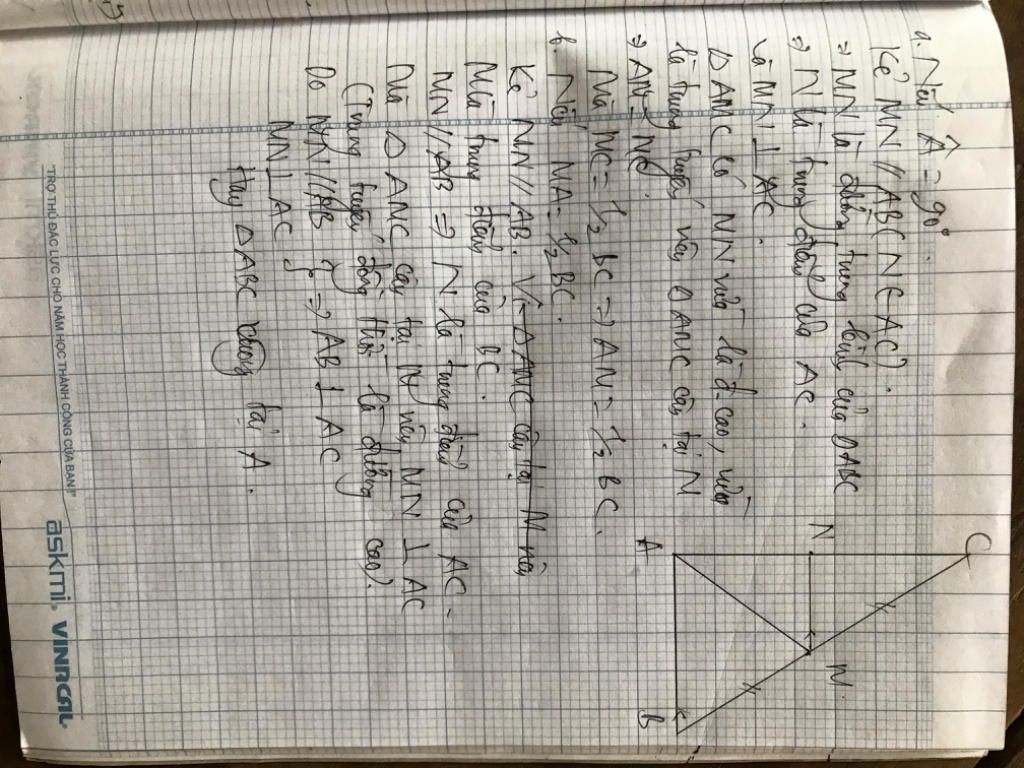 a. Nếu Â = 90°.
Kẻ MN // AB (N ∈ AC).
⇒ MN là đường trung bình của ΔABC
⇒ N là trung điểm của AC.
và MN ⊥ AC.
Δ AMC có MN vừa là đ-cao, vừa
là trung tuyến nên Δ AMC cân tại M
⇒ AM = MC.
Mà MC = 1/2 BC ⇒ AM = 1/2 BC.
b. Nếu MA = 1/2 BC.
Kẻ MN // AB. Vì Δ AMC cân tại M nên
M là trung điểm của BC.
MN // AB ⇒ N là trung điểm của AC.
Mà Δ AMC cân tại M nên MN ⊥ AC
(Trung tuyến đồng thời là đường cao).
Do MN // AB } ⇒ AB ⊥ AC
MN ⊥ AC
Hay Δ ABC vuông tại A.
C
N
M
A
B
"TRỢ THỦ ĐẮC LỰC CHO NĂM HỌC THÀNH CÔNG CỦA BẠN!"
askmi. VINACAL